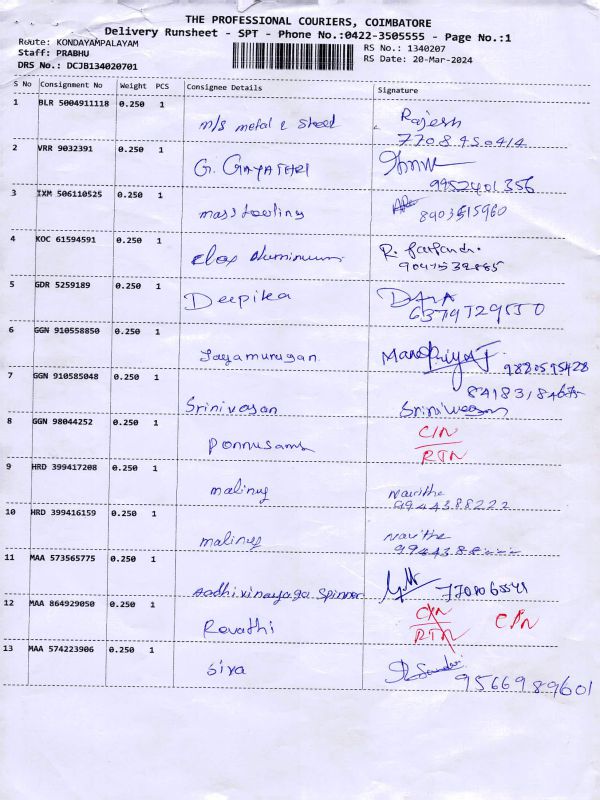 THE PROFESSIONAL COURIERS, COIMBATORE
Delivery Runsheet - SPT - Phone No.:0422-3505555 - Page No.:1
Route: KONDAYAMPALAYAM
RS No.: 1340207
Staff: PRABHU
RS Date: 20-Mar-2024
DRS No.: DCJB134020701
S No Consignment No Weight PCS Consignee Details Signature
1 BLR 5004911118 0.250 1
m/s metal & Steel Rajesh
7708450414
2 VRR 9032391 0.250 1
G. GAYATHRI
9952401356
3 IXM 506110525 0.250 1
mass tooling 8903515960
4 KOC 61594591 0.250 1
Elox Aluminium R.
5 GDR 5259189 0.250 1
Deepika
6379729550
6 GGN 910558850 0.250 1
Jayamurugan
9820595428
7 GGN 910585048 0.250 1
Srinivasan
8 GGN 98044252 0.250 1
Ponnusamy
RTN
9 HRD 399417208 0.250 1
Navitha
9944388222
10 HRD 399416159 0.250 1
Navitha
11 MAA 573565775 0.250 1
Aadhivinayaga Spinner
12 MAA 864929050 0.250 1
Revathi
RTN
13 MAA 574223906 0.250 1
Siva
9566989601